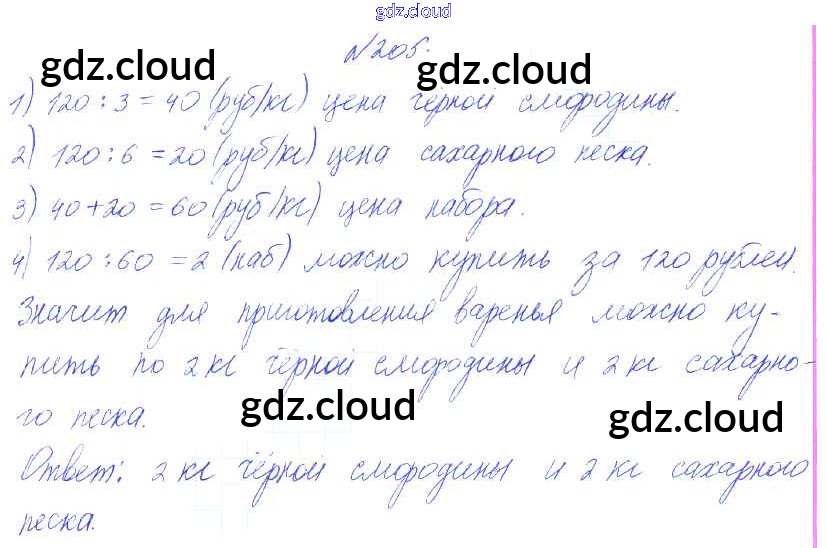 gdz.cloud
№205.
gdz.cloud gdz.cloud
1) 120 : 3 = 40 (руб/кг) цена чёрной смородины.
2) 120 : 6 = 20 (руб/кг) цена сахарного песка.
3) 40 + 20 = 60 (руб/кг) цена набора.
4) 120 : 60 = 2 (наб) можно купить за 120 рублей.
Значит для приготовления варенья можно ку-
пить по 2 кг чёрной смородины и 2 кг сахарно-
го песка.
gdz.cloud gdz.cloud
Ответ: 2 кг чёрной смородины и 2 кг сахарного
песка.